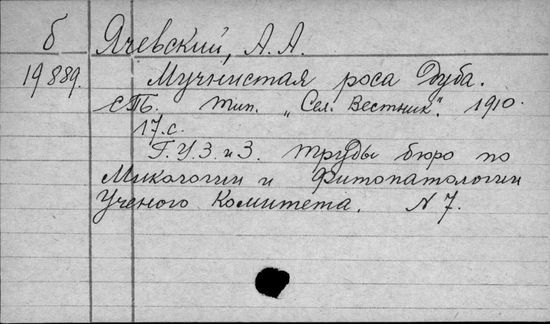 б Ячевский, А. А.
19889. Мучнистая роса Дуба.
СПБ. Тип. „Сел. Вестник". 1910.
17. с.
Г.У.З. и З. Труды бюро по
Микологии и Фитопатологии
Ученого Комитета. N 7.